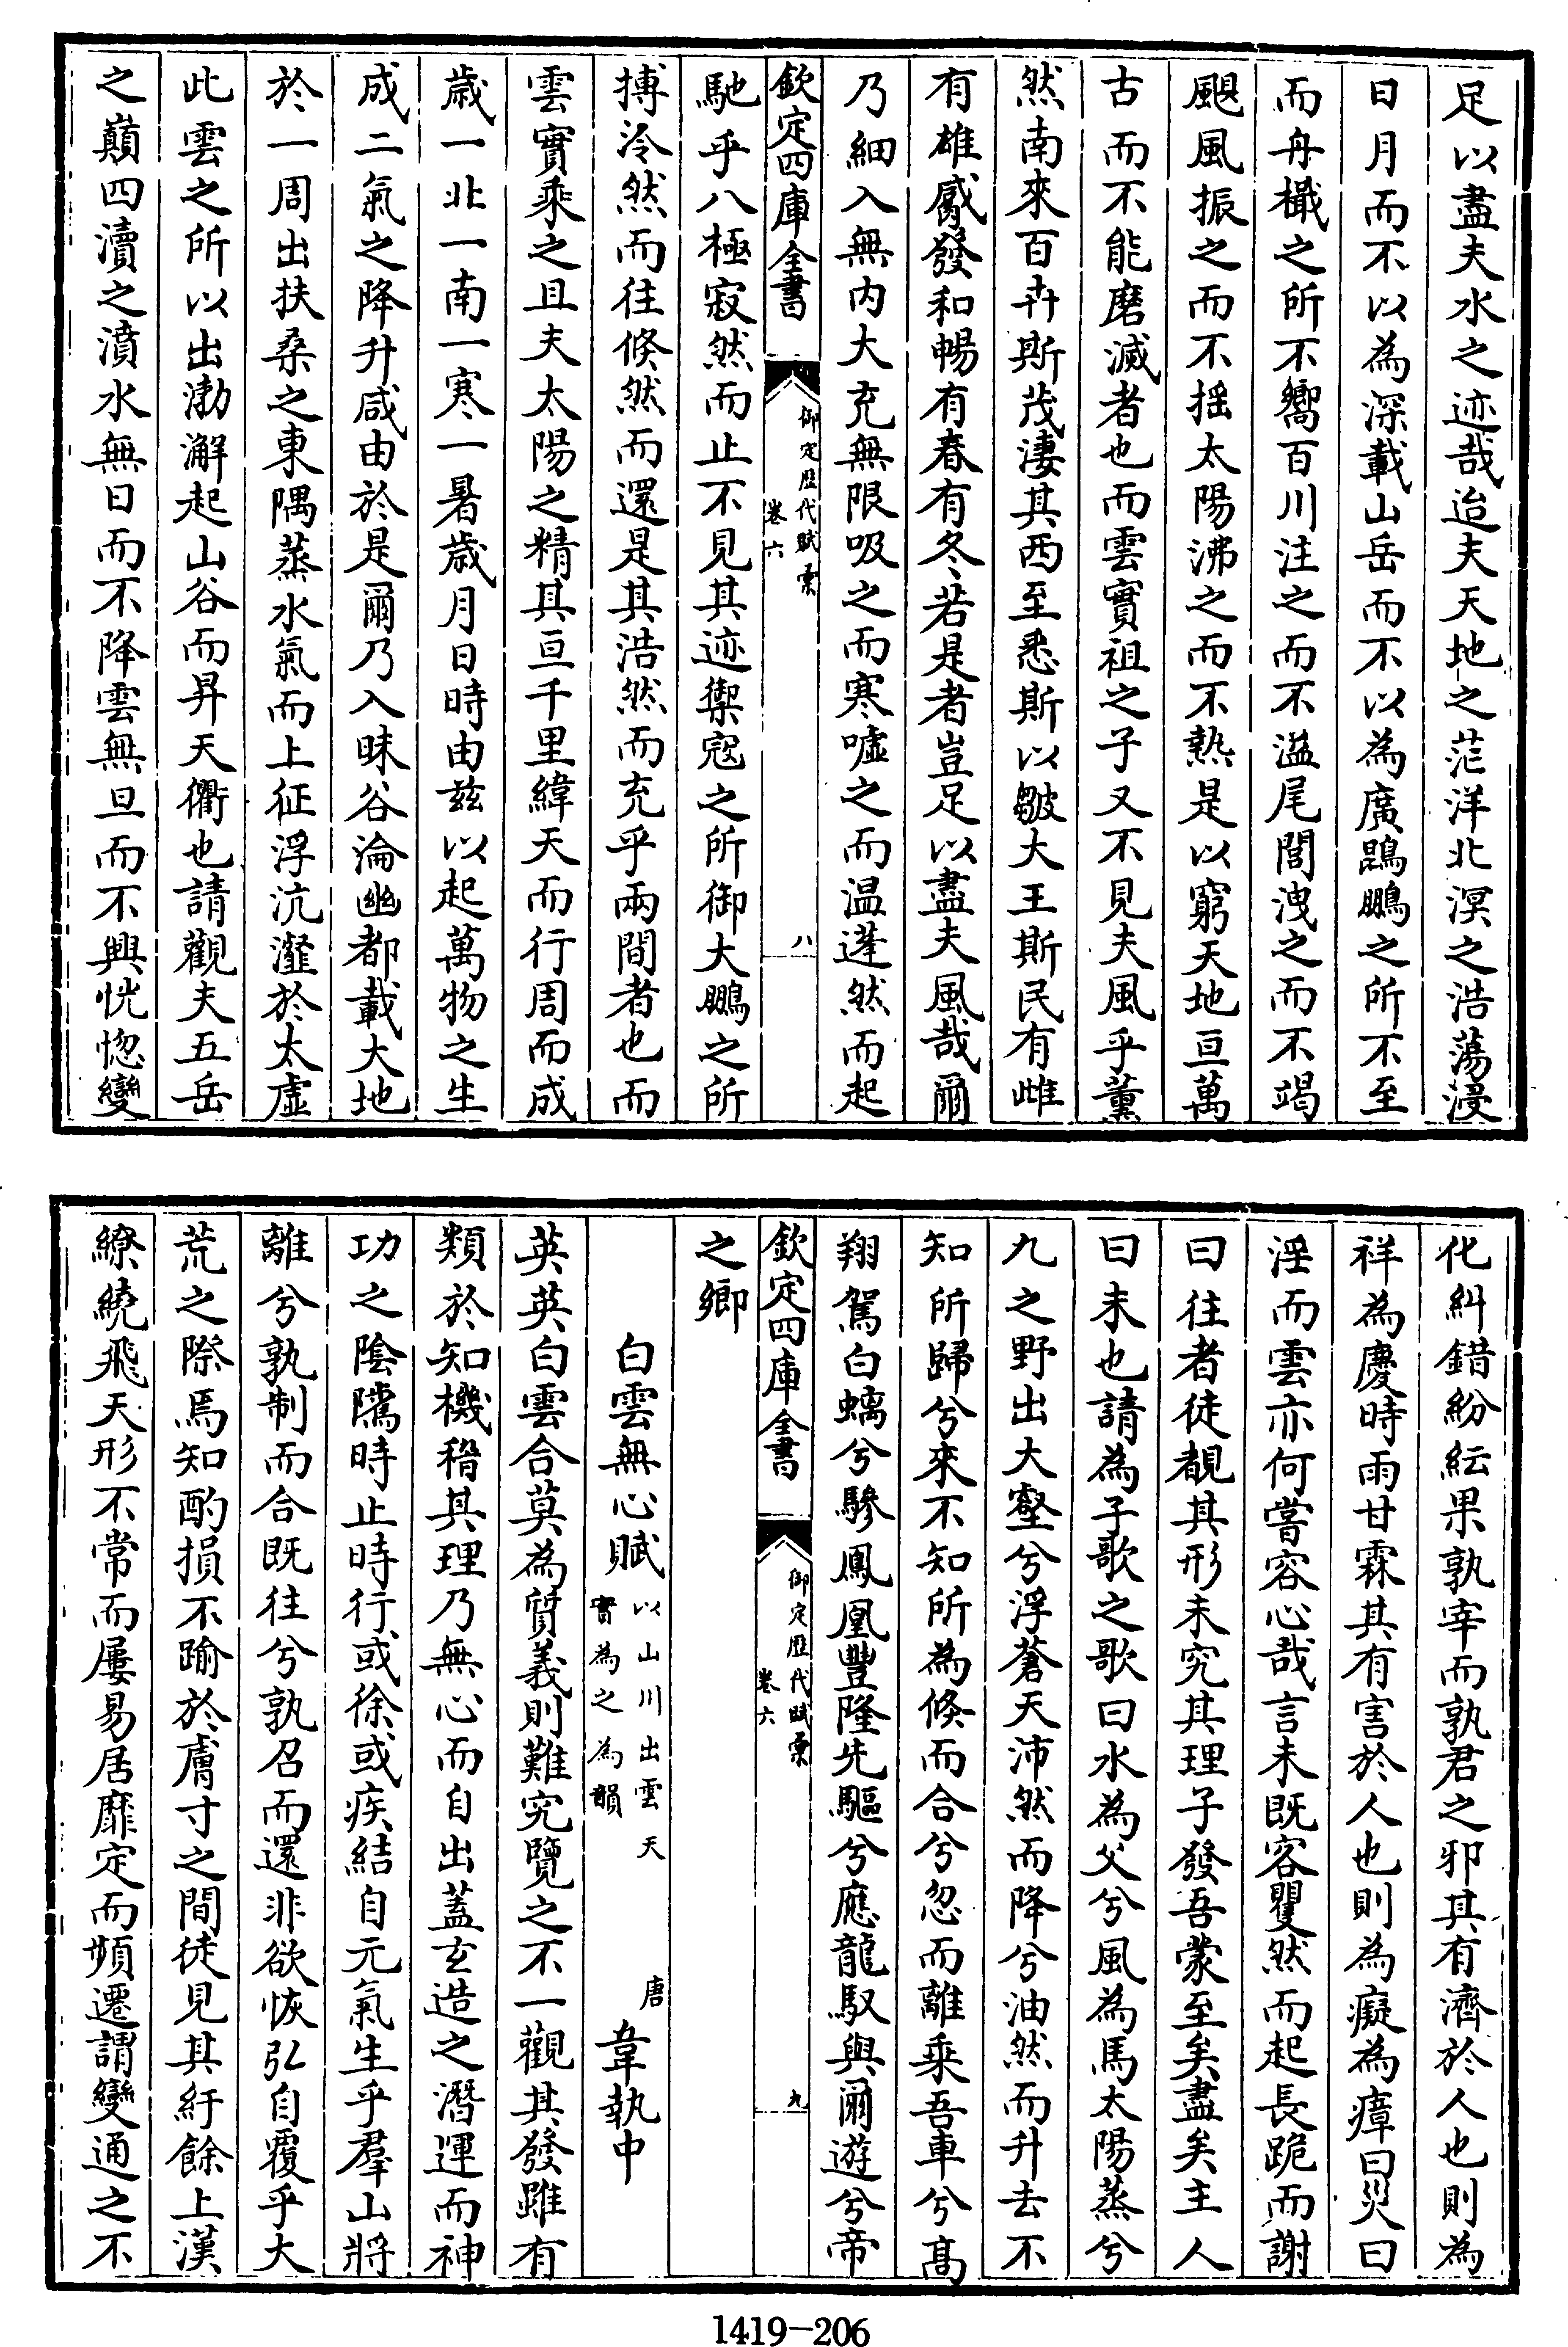 足以盡夫水之迹哉迨夫天地之茫洋北溟之浩蕩浸
日月而不以為深載山岳而不以為廣鵾鵬之所不至
而舟檝之所不嚮百川注之而不溢尾閭洩之而不竭
颶風振之而不揺太陽沸之而不熱是以窮天地亘萬
古而不能磨滅者也而雲實祖之子又不見夫風乎薰
然南來百卉斯茂淒其西至悉斯以皺大王斯民有雌
有雄觱發和暢有春有冬若是者豈足以盡夫風哉爾
乃細入無内大充無限吸之而寒嘘之而温蓬然而起
欽定四庫全書
御定歴代賦彙
卷六
八
馳乎八極寂然而止不見其迹禦寇之所御大鵬之所
搏泠然而往倏然而還是其浩然而充乎兩間者也而
雲實乘之且夫太陽之精其亘千里緯天而行周而成
歳一北一南一寒一暑歳月日時由兹以起萬物之生
成二氣之降升咸由於是爾乃入昧谷淪幽都載大地
於一周出扶桑之東隅蒸水氣而上征浮沆瀣於太虛
此雲之所以出渤澥起山谷而昇天衢也請觀夫五岳
之巔四瀆之濆水無日而不降雲無旦而不興恍惚變
化糾錯紛紜果孰宰而孰君之邪其有濟於人也則為
祥為慶時雨甘霖其有害於人也則為癡為瘴曰災曰
淫而雲亦何嘗容心哉言未既客瞿然而起長跪而謝
曰往者徒覩其形未究其理子發吾蒙至矣盡矣主人
曰未也請為子歌之歌曰水為父兮風為馬太陽蒸兮
九之野出大壑兮浮蒼天沛然而降兮油然而升去不
知所歸兮來不知所為倏而合兮忽而離乘吾車兮高
翔駕白螭兮驂鳳凰豐隆先驅兮應龍馭與爾遊兮帝
欽定四庫全書
御定歴代賦彙
卷六
九
之鄉
白雲無心賦 以山川出雲天實為之為韻 唐 韋執中
英英白雲合莫為質義則難究覽之不一觀其發雖有
類於知機稽其理乃無心而自出蓋玄造之潛運而神
功之陰隲時止時行或徐或疾結自元氣生乎羣山將
離兮孰制而合既往兮孰召而還非欲恢弘自覆乎大
荒之際焉知酌損不踰於膚寸之間徒見其紆餘上漢
繚繞飛天形不常而屢易居靡定而頻遷謂變通之不
1419-206